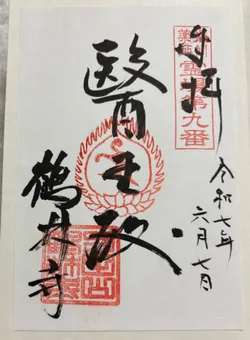 奉拝
霊場第九番
令和七年
六月七日
醫王殿
鶴林寺